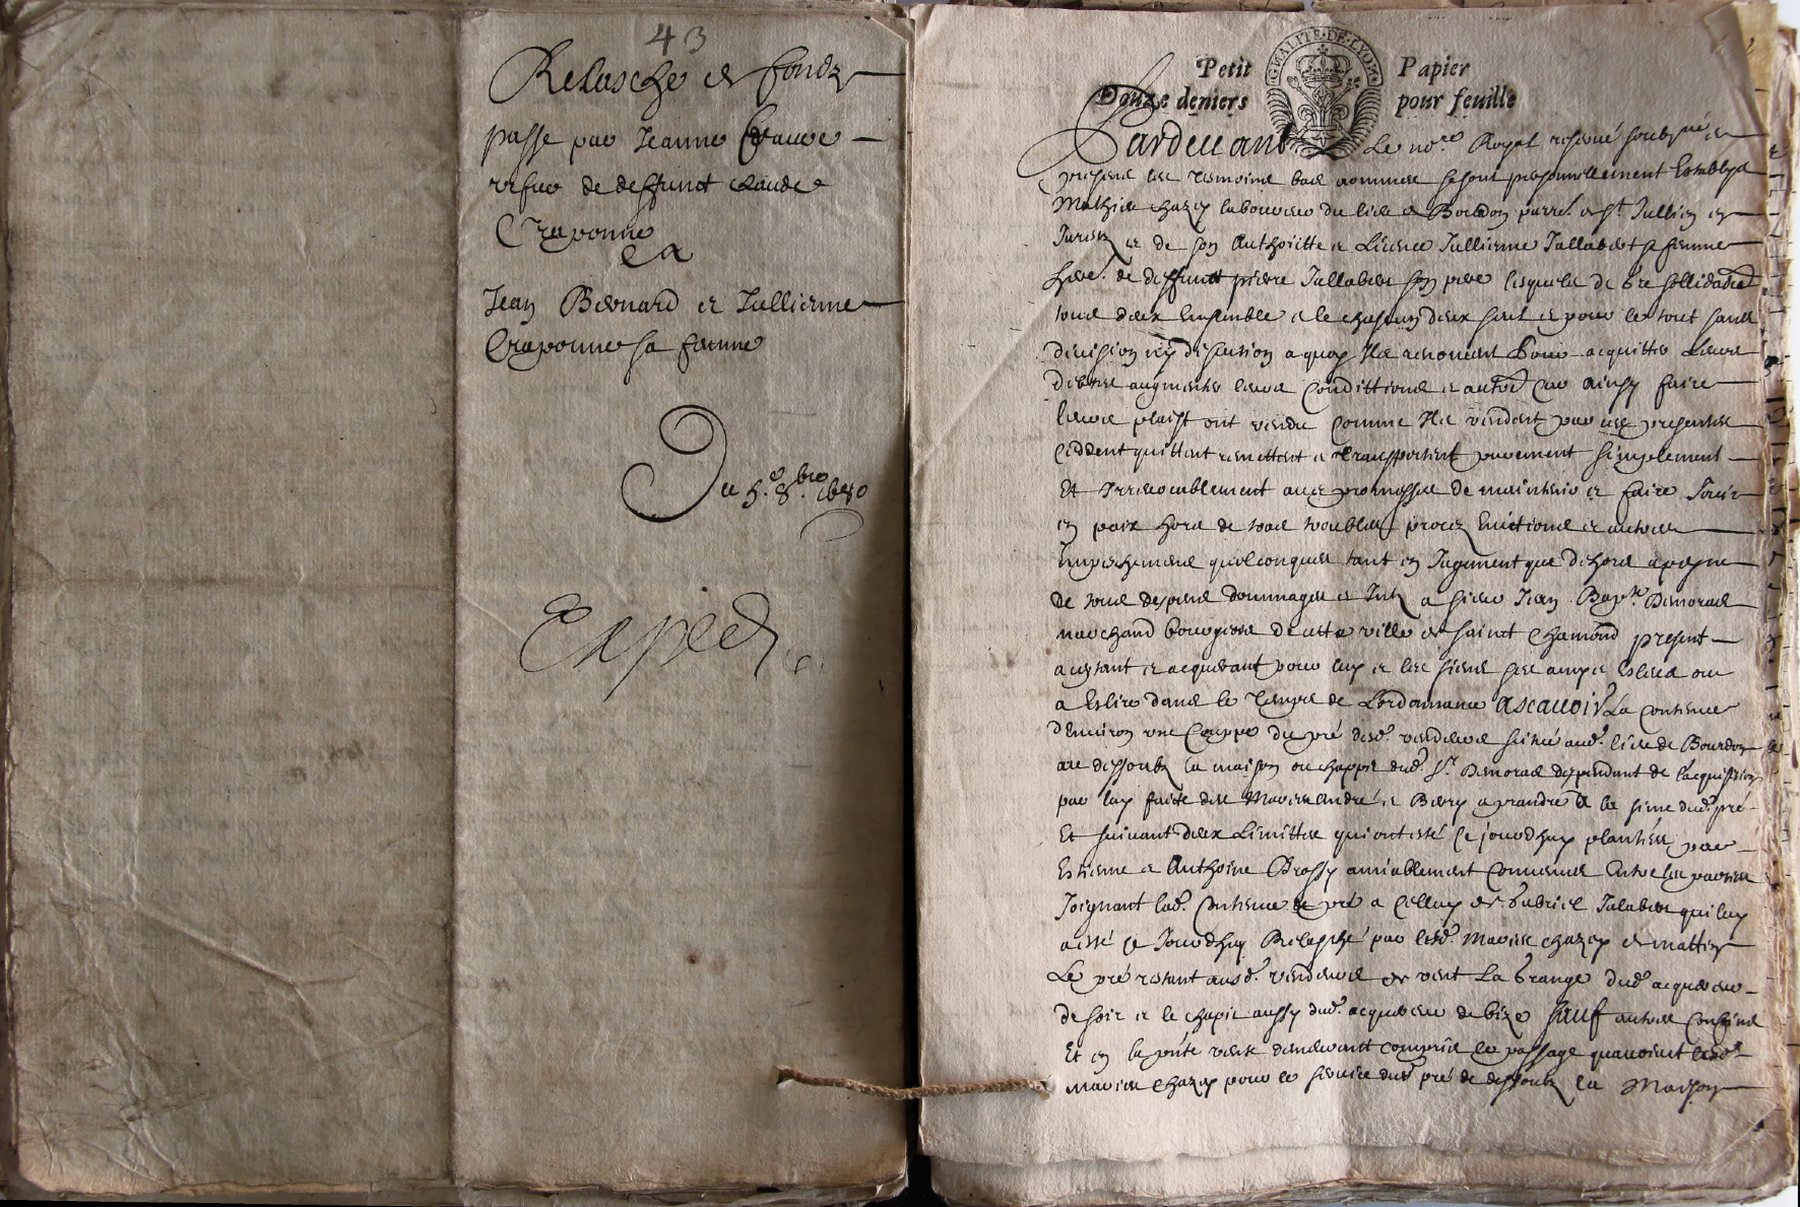 43
Relasche et fondz
passe par Jeanne
vefve de deffunct Claude
Craponne
et
Jean Bernard et Jullienne
Craponne sa femme
Du 5e 8bre 1680
Exped
GNALITE DE LYON
Petit Papier
Douze deniers pour feuille
Pardevant Le nore Royal reservé soubzné et
presens les tesmoins bas nommes se sont personnellement Establys
Mathieu chazey laboureur du lieu de Bourdon parre de St Jullien en
Jarestz et de son Authoritte et Licence Jullienne Jallabert sa femme
here de deffunct pierre Jallabert son pere lesquels de gre sollidaires
tous deux Ensemble et le chascung deux seul et pour le tout sans
division ny discution a quoy Ils renoncent Pour acquitter Leurs
debtes augmenter leurs Condittions et autres Car ainsy faire
leurs plaist ont vendu comme Ils vendent par ces presentes
Ceddent quittent remettent et transportent purement simplement
Et Irrevocablement avec promesses de maintenir et faire Jouir
en paix hors de tous troubles procez Evictions et autres
Empechemens quelconques tant en Jugement que dehors a peyne
de tous despens dommages et Intz a sieur Jean Bapte Dimorad
marchand bourgeois de cette ville de Saint Chamond present
acceptant et acquerant pour luy et les siens ses amys Esleus ou
a Eslire dans le temps de Lordonnance Ascauoir La contenue
d'Environ une Couppe du pré desd. vendeurs scitué aud. lieu de Bourdon
au dessoubz la maison ou chappit dud. Sr. Dimorad deppendant de l'acquisition
par luy faicte des Maries André et a prandre a la sime dud. pré
Et suivant deux Limittes qui ont esté ce jourdhuy plantées par
Estienne et Anthoine Brossy amiablement convenus Entre les parties
Joignant lad. contenue de pré a Celluy de Gabriel Jalabert qui luy
a esté ce Jourdhuy Relasché par lesd. Maries chazey de mattin
Le pré restant ausd. vendeurs de vent La Grange dud acquereur
de soir et le chapit aussy dud. acquereur de bize sauf autres Confins
Et en la pnte vente demeurant compris le passage quavoient lesd
maries Chazey pour le service dud pré de dessoubz la Maison